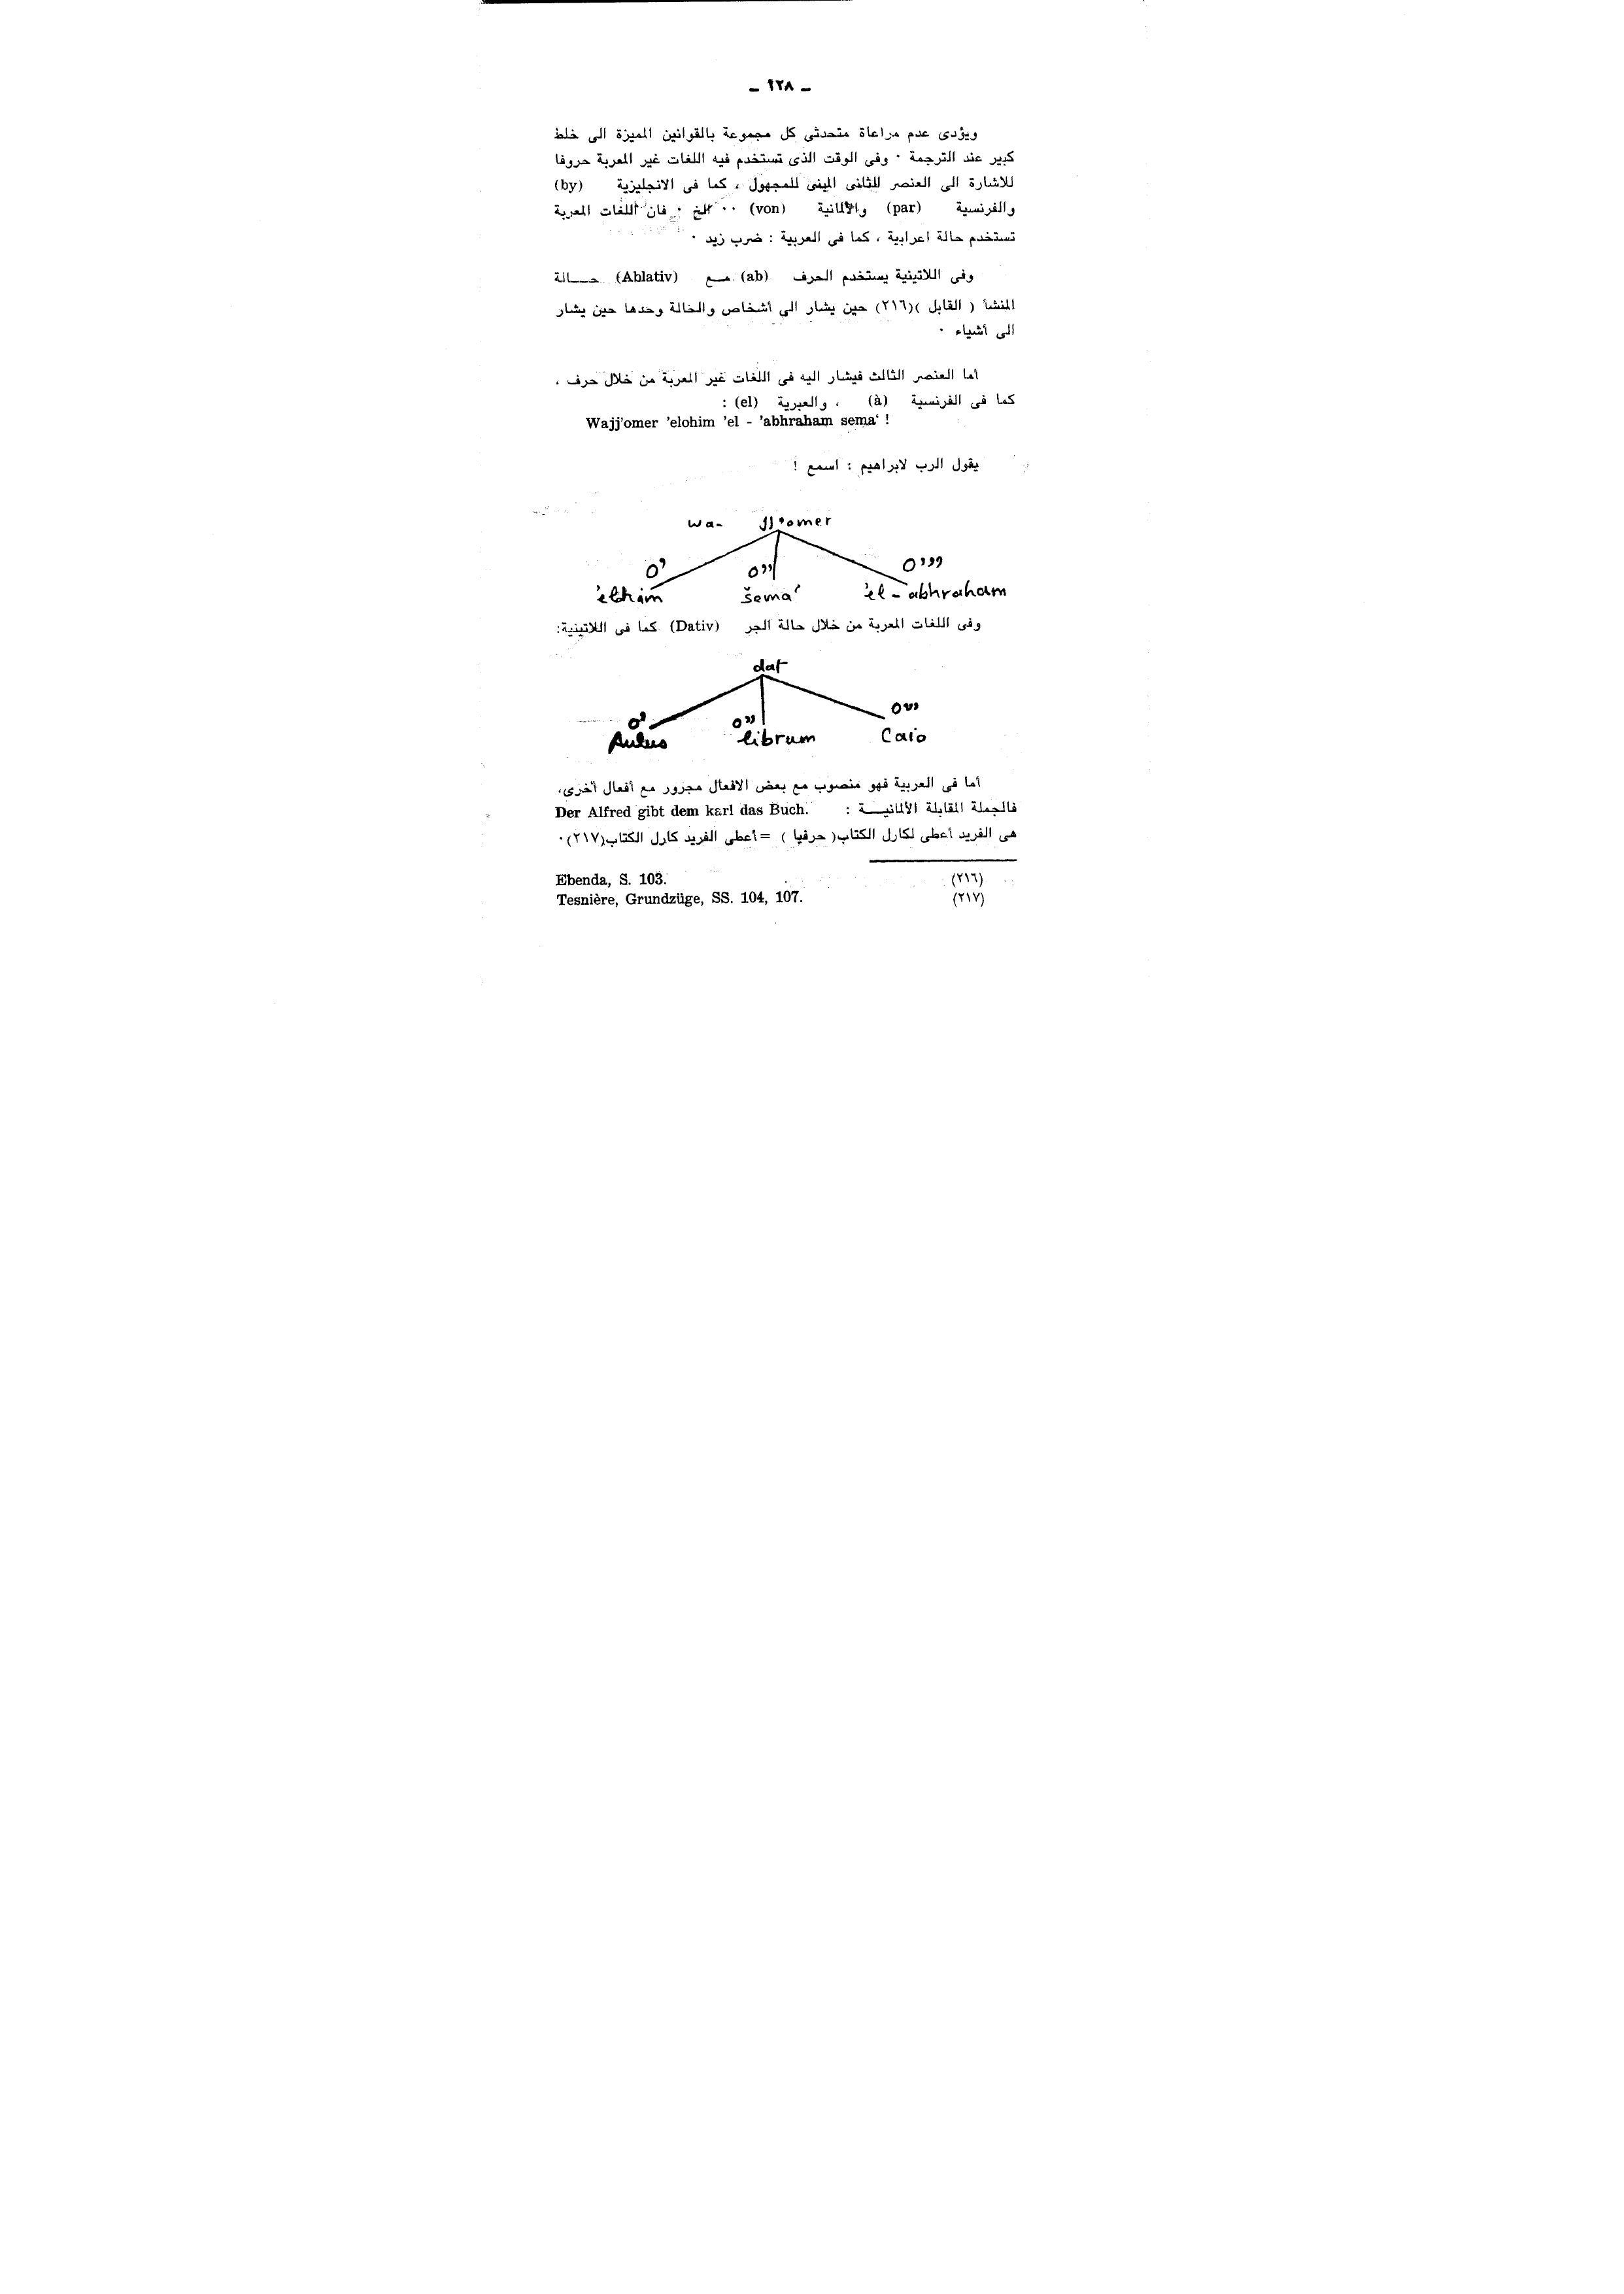 ـ ١٢٨ ـ
ويؤدى عدم مراعاة متحدثى كل مجموعة بالقوانين المميزة الى خلط
كبير عند الترجمة ٠ وفى الوقت الذى تستخدم فيه اللغات غير المعربة حروفا
للاشارة الى العنصر للثانى المبنى للمجهول ، كما فى الانجليزية (by)
والفرنسية (par) والألمانية (von) ٠٠ الخ ٠ فان اللغات المعربة
تستخدم حالة اعرابية ، كما فى العربية : ضرب زيد ٠
وفى اللاتينية يستخدم الحرف (ab) مـع (Ablativ) حـــالة
المنشأ ( القابل )(٢١٦) حين يشار الى أشخاص والحالة وحدها حين يشار
الى أشياء ٠
أما العنصر الثالث فيشار اليه فى اللغات غير المعربة من خلال حرف ،
كما فى الفرنسية (à) ، والعبرية (el) :
Wajj’omer ’elohim ’el - ’abhraham sema‘ !
يقول الرب لابراهيم : اسمع !
wa- jj’omer
o’ o’’ o’’’
šema‘ ’el-abhraham
وفى اللغات المعربة من خلال حالة الجر (Dativ) كما فى اللاتينية:
dat
o’ o’’ o’’’
Aulus librum Caio
أما فى العربية فهو منصوب مع بعض الافعال مجرور مع أفعال أخرى،
فالجملة المقابلة الألمانيـــة : Der Alfred gibt dem karl das Buch.
هى الفريد أعطى لكارل الكتاب( حرفيا ) =أعطى الفريد كارل الكتاب(٢١٧)٠
(٢١٦) Ebenda, S. 103.
(٢١٧) Tesnière, Grundzüge, SS. 104, 107.